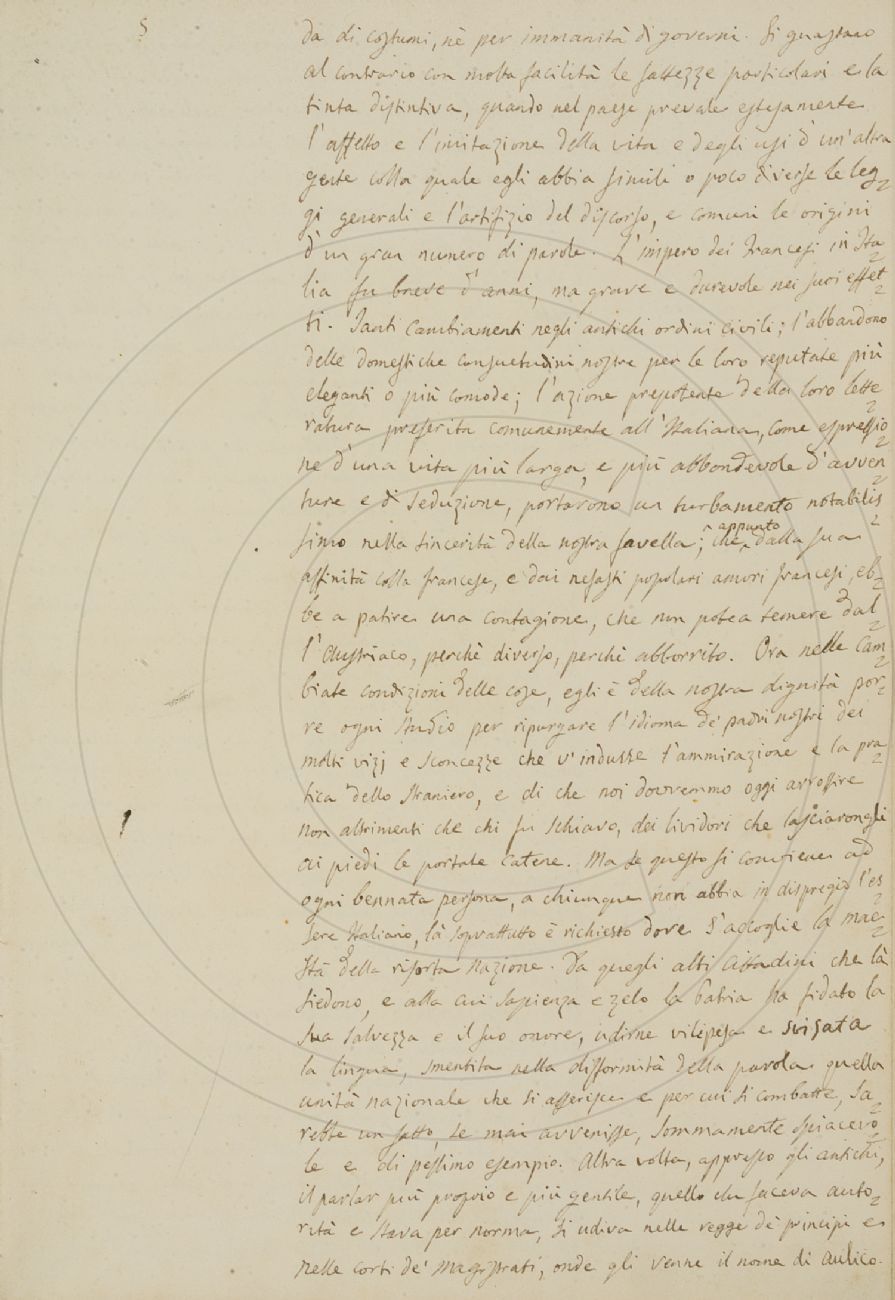 5
da di costumi, nè per immanità di governi. Si guastano
al contrario con molta facilità le fattezze particolari e la
tinta distintiva, quando nel paese prevale estesamente
l'affetto e l'imitazione della vita e degli usi d'un'altra
gente colla quale egli abbia simili o poco diverse le leg
gi generali e l'artifizio del discorso, e comuni le origini
d'un gran numero di parole. L'impero dei Francesi in Ita
lia fu breve d'anni, ma grave e durevole nei suoi effet
ti. Tanti cambiamenti negli antichi ordini civili; l'abbandono
delle domestiche consuetudini nostre per le loro reputate più
eleganti o più comode; l'azione prepotente della loro lette
ratura preferita comunemente all'Italiana, come espressio
ne d'una vita più larga, e più abbondevole d'avven
ture e di seduzione, portarono un turbamento notabilis
simo nella sincerità della nostra favella; che appunto dalla sua
affinità colla francese, e dai nefasti popolari amori francesi, eb
be a patire una contagione, che non potea temere dal
l'Austriaco, perchè diverso, perchè abborrito. Ora nelle cam
biate condizioni delle cose, egli è della nostra dignità por
re ogni studio per ripurgare l'idioma de' padri nostri dei
molti vizj e sconcezze che v'indusse l'ammirazione e la pra
tica dello straniero, e di che noi dovremmo oggi arrossire
non altrimenti che chi fu schiavo, dei lividori che lasciarongli
ai piedi le portate catene. Ma se questo si conviene ad
ogni bennata persona, a chiunque non abbia in dispregio l'es
sere Italiano, là soprattutto è richiesto dove s'accoglie la mae
stà della risorta Nazione. Da quegli alti cittadini che là
siedono, e alla cui sapienza e zelo la Patria ha fidato la
sua salvezza e il suo onore, udirne vilipesa e svisata
la lingua, smentita nella difformità della parola quella
unità nazionale che si asserisce e per cui si combatte, sa
rebbe un fatto, se mai avvenisse, sommamente spiacevo
le e di pessimo esempio. Altra volta, appresso gli antichi,
il parlar più proprio e più gentile, quello che faceva auto
rità e stava per norma, si udiva nelle regge de' principi e
nelle corti de' Magistrati, onde gli venne il nome di aulico.